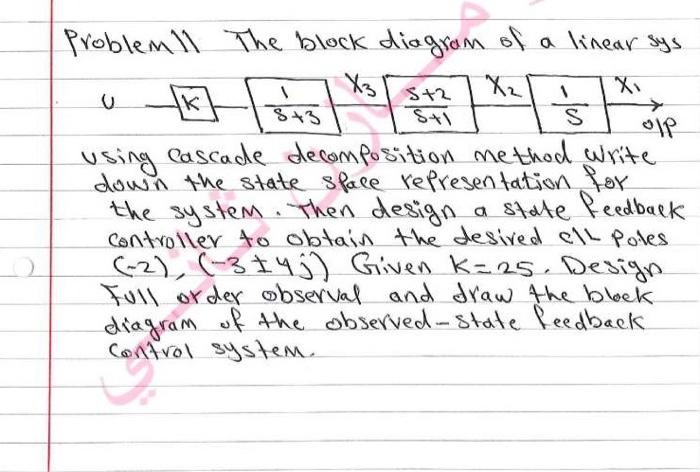 Problem 11 The block diagram of a linear sys
U K 1/S+3 X3 S+2/S+1 X2 1/S X1 o/p
using cascade decomposition method write
down the state space representation for
the system. Then design a state feedback
controller to obtain the desired c/L poles
(-2), (-3±4j) Given K=25. Design
Full order observal and draw the block
diagram of the observed-state feedback
Control system.